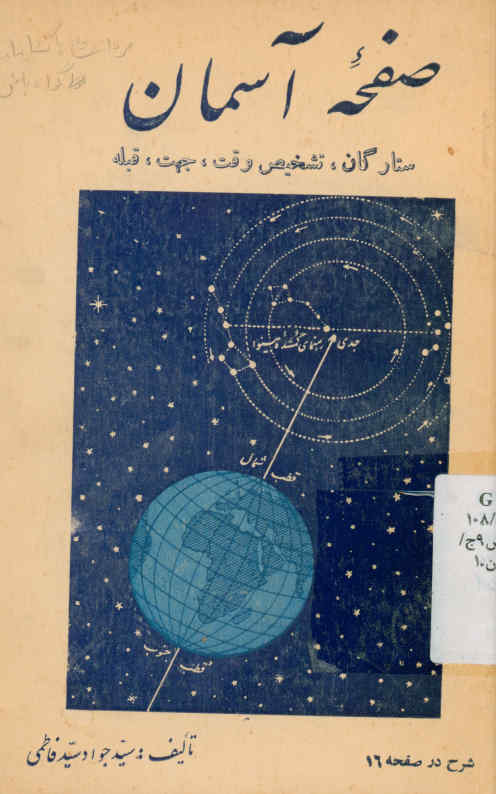 صفحهٔ آسمان
ستارگان ، تشخیص وقت ، جهت ، قبله
جدی
قطب شمال
قطب جنوب
G
۱۰۸/
تألیف : سیّد جواد سیّد فاطمی
شرح در صفحه ۱۶